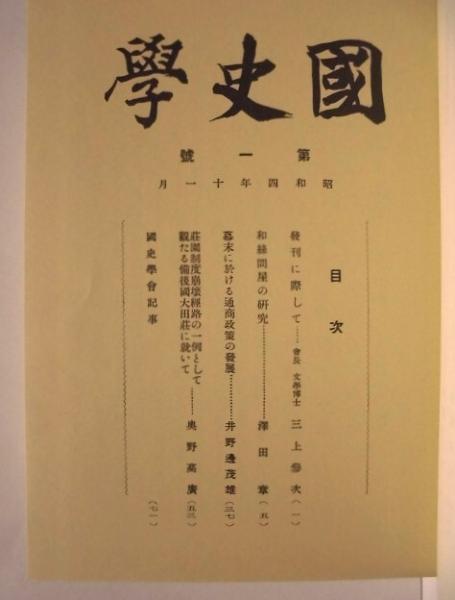 國史學
第一號
昭和四年十一月
目次
發刊に際して……會長 文學博士 三上參次（一）
和絲問屋の硏究……………澤田章（五）
幕末に於ける通商政策の發展……………井野邊茂雄（三七）
莊園制度崩壞經路の一例として
觀たる備後國大田莊に就いて………奥野高廣（五三）
國史學會記事（七一）